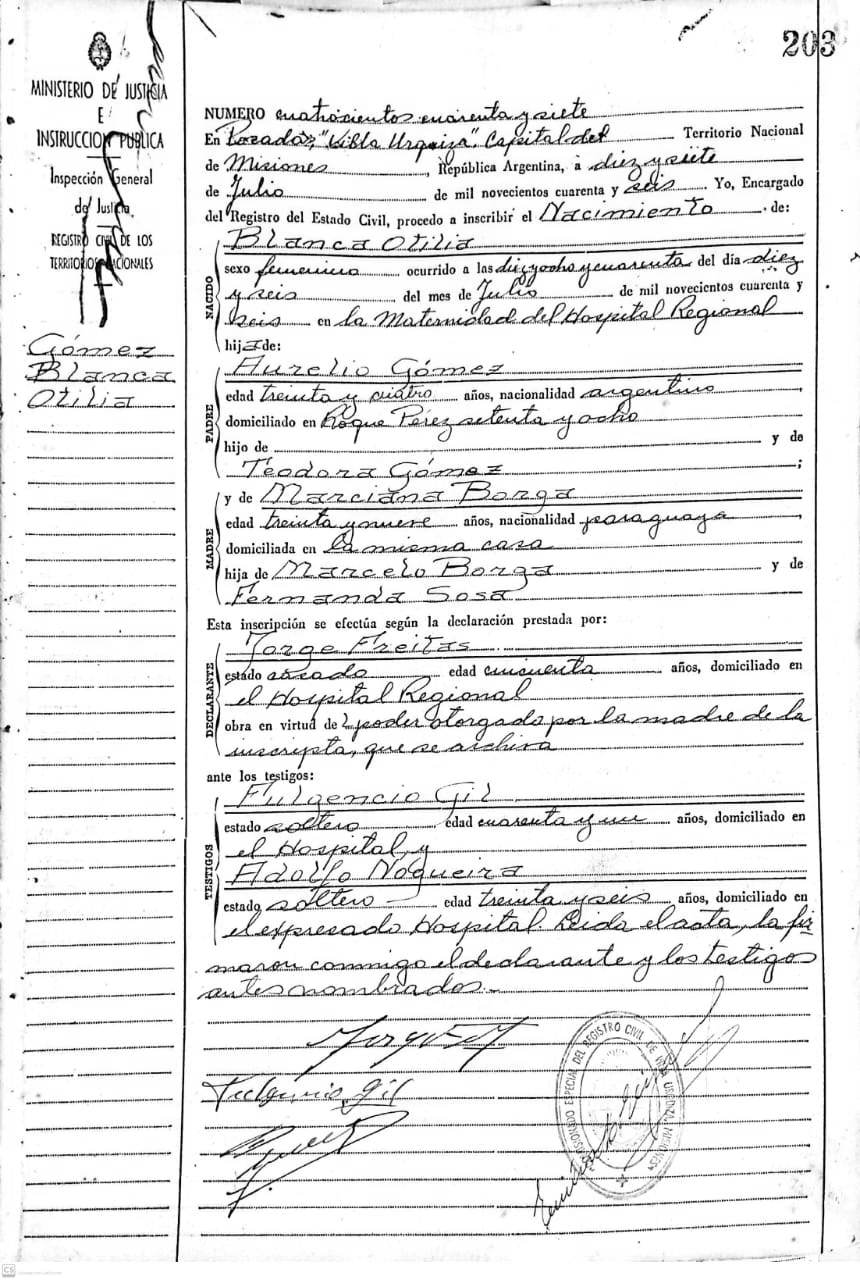 203
MINISTERIO DE JUSTICIA
E
INSTRUCCION PUBLICA
Inspección General
de Justicia
REGISTRO CIVIL DE LOS
TERRITORIOS NACIONALES
Gómez
Blanca
Otilia
NUMERO cuatrocientos cuarenta y siete
En Posadas, "Villa Urquiza" Capital del Territorio Nacional
de Misiones, República Argentina, a diez y siete
de Julio de mil novecientos cuarenta y seis. Yo, Encargado
del Registro del Estado Civil, procedo a inscribir el Nacimiento de:
NACIDO
Blanca Otilia
sexo femenino ocurrido a las diez y ocho y cuarenta del día diez
y seis del mes de Julio de mil novecientos cuarenta y
seis en la Maternidad del Hospital Regional
hija de:
PADRE
Aurelio Gómez
edad treinta y cuatro años, nacionalidad argentino,
domiciliado en Roque Pérez setenta y ocho
hijo de y de
Teodora Gómez;
MADRE
y de Marciana Borga
edad treinta y nueve años, nacionalidad paraguaya,
domiciliada en la misma casa
hija de Marcelo Borga y de
Fernanda Sosa
Esta inscripción se efectúa según la declaración prestada por:
DECLARANTE
Jorge Freitas
estado casado edad cincuenta años, domiciliado en
el Hospital Regional
obra en virtud de poder otorgado por la madre de la
inscripta, que se archiva
ante los testigos:
TESTIGOS
Fulgencio Gil
estado soltero edad cuarenta y un años, domiciliado en
el Hospital, y
Adolfo Nogueira
estado soltero edad treinta y seis años, domiciliado en
el expresado Hospital. Leida el acta, la fir-
maron conmigo el declarante y los testigos
antes nombrados.-
Fulgencio Gil
DEL REGISTRO CIVIL DE VILLA URQUIZA MISIONES
CS